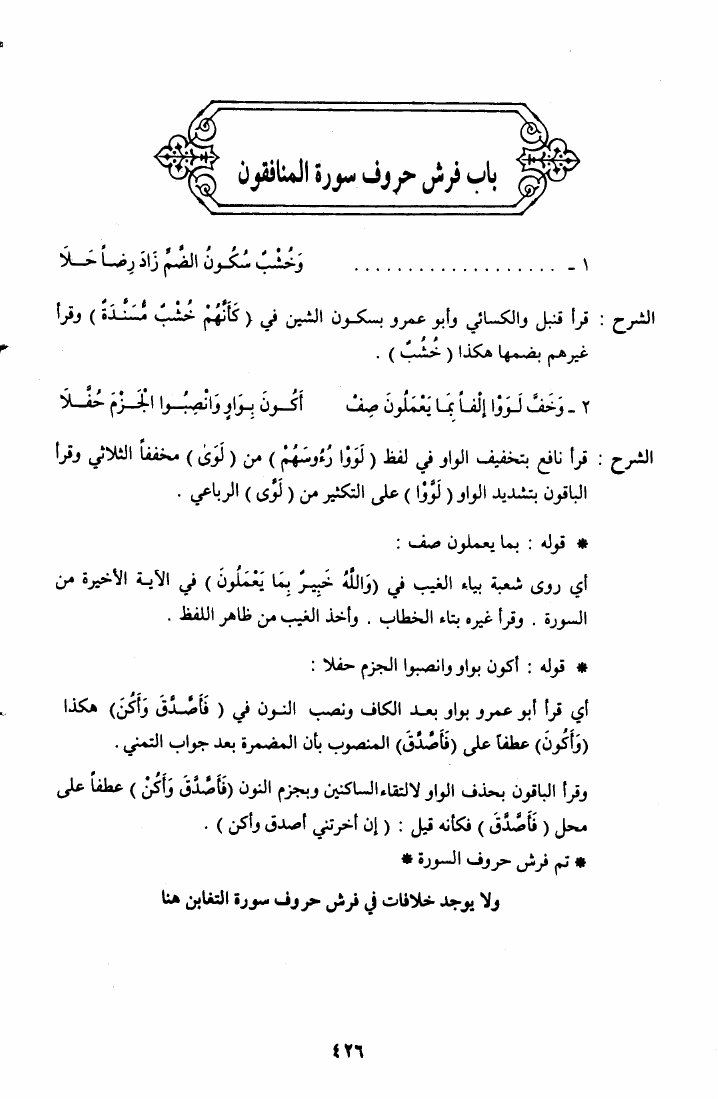 باب فرش حروف سورة المنافقون
١ ـ .................... وَخُشْبٌ سُكُونُ الضَّمِّ زَادَ رِضاً حَلَا
الشرح : قرأ قنبل والكسائي وأبو عمرو بسكون الشين في ( كَأَنَّهُمْ خُشْبٌ مُسَنَّدَةٌ ) وقرأ
غيرهم بضمها هكذا ( خُشُبٌ ) .
٢ ـ وَخَفَّ لَوَوْا إِلْفاً بِمَا يَعْمَلُونَ صِفْ أَكُونَ بِوَاوٍ وَانْصِبُوا الْجَزْمَ حُفَّلَا
الشرح : قرأ نافع بتخفيف الواو في لفظ ( لَوَوْا رُءُوسَهُمْ ) من ( لَوَىٰ ) مخففاً الثلاثي وقرأ
الباقون بتشديد الواو ( لَوَّوْا ) على التكثير من ( لَوَّى ) الرباعي .
* قوله : بما يعملون صف :
أي روى شعبة بياء الغيب في (وَاللَّهُ خَبِيرٌ بِمَا يَعْمَلُونَ ) في الآية الأخيرة من
السورة . وقرأ غيره بتاء الخطاب . وأخذ الغيب من ظاهر اللفظ .
* قوله : أكون بواو وانصبوا الجزم حفلا :
أي قرأ أبو عمرو بواو بعد الكاف ونصب النون في ( فَأَصَّدَّقَ وَأَكُنَ) هكذا
(وَأَكُونَ) عطفاً على (فَأَصَّدَّقَ) المنصوب بأن المضمرة بعد جواب التمني .
وقرأ الباقون بحذف الواو لالتقاءالساكنين وبجزم النون (فَأَصَّدَّقَ وَأَكُنْ ) عطفاً على
محل ( فَأَصَّدَّقَ ) فكأنه قيل : ( إن أخرتني أصدق وأكن ) .
* تم فرش حروف السورة *
ولا يوجد خلافات في فرش حروف سورة التغابن هنا
٤٢٦